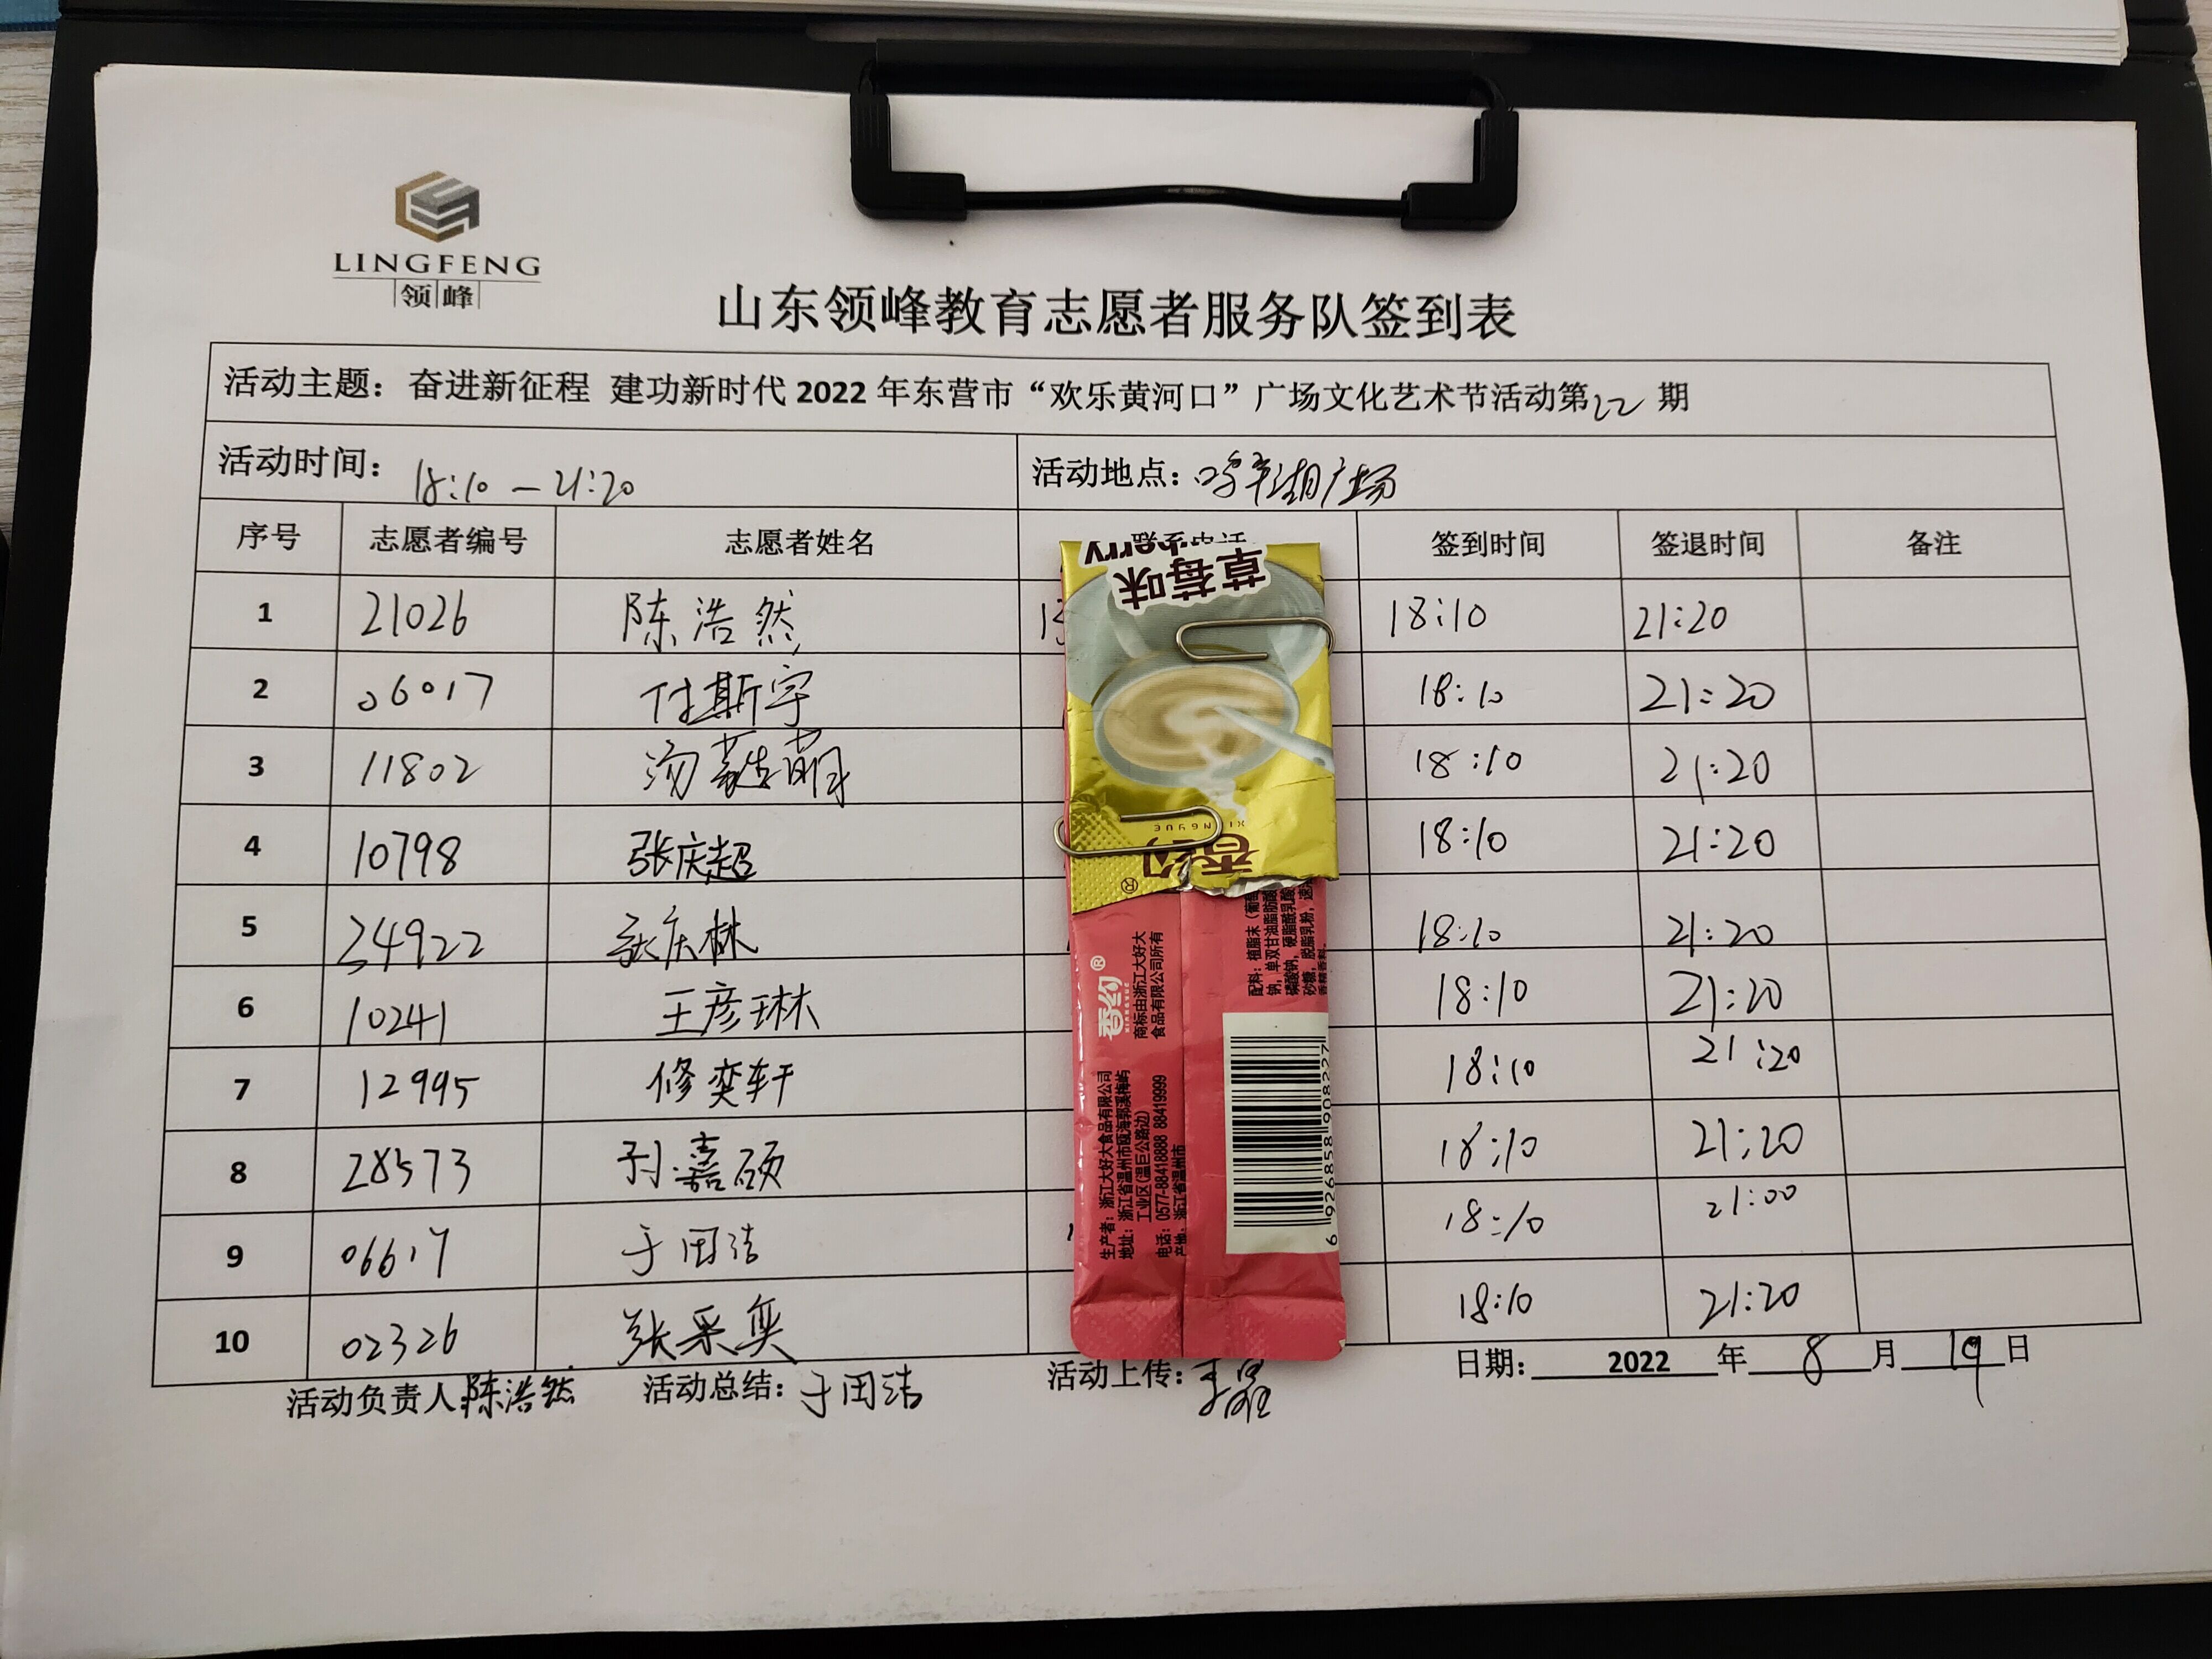 LINGFENG
领峰
山东领峰教育志愿者服务队签到表
活动主题：奋进新征程 建功新时代 2022 年东营市“欢乐黄河口”广场文化艺术节活动第22期
活动时间：18:10—21:20 活动地点：广场
序号 志愿者编号 志愿者姓名 签到时间 签退时间 备注
1 21026 陈浩然 18:10 21:20
2 06017 付斯宇 18:10 21:20
3 11802 汤 萌 18:10 21:20
4 10798 张庆超 18:10 21:20
5 24922 张庆林 18:10 21:20
6 10241 王彦琳 18:10 21:20
7 12995 修奕轩 18:10 21:20
8 28573 孙嘉硕 18:10 21:20
9 06617 于 洁 18:10 21:00
10 02326 张采奥 18:10 21:20
活动负责人：陈浩然 活动总结：于 洁 活动上传： 日期：2022年8月19日
草莓味
香约
XIANGYUE
®
香约®
商标由浙江大好大
食品有限公司所有
生产者：浙江大好大食品有限公司
地址：浙江省温州市瓯海郭溪梅屿
工业区(温巨公路边)
电话：0577-88418888 88419999
产地：浙江省温州市
配料：植脂末（葡萄
钠，单双甘油脂肪酸
磷酸钠，硬脂酰乳酸
砂糖，脱脂乳粉，速溶
香精香料。
6 926858 908227